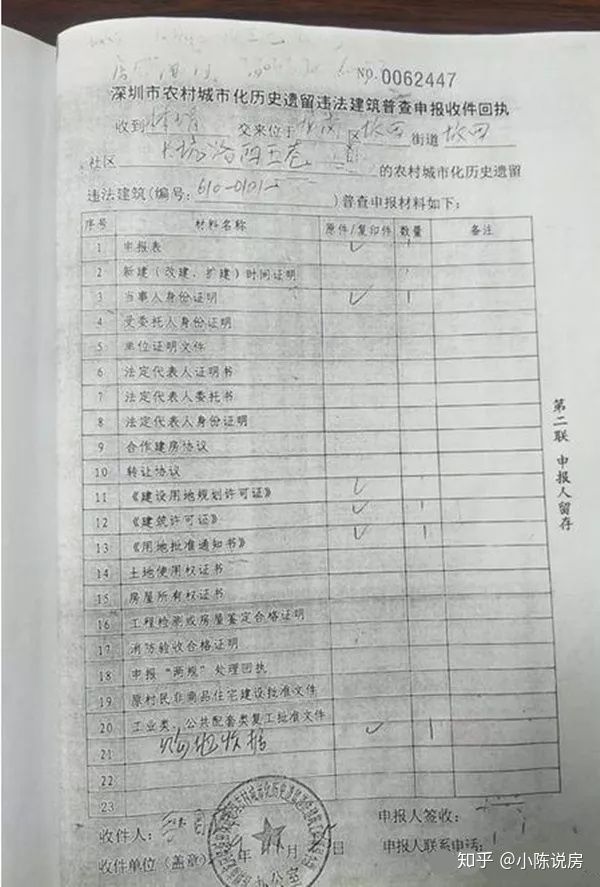 NO. 0062447
深圳市农村城市化历史遗留违法建筑普查申报收件回执
收到 交来位于 区 坂田 街道 坂田
社区 的农村城市化历史遗留
违法建筑(编号: )普查申报材料如下:
序号 材料名称 原件/复印件 数量 备注
1 申报表 ✓ 1
2 新建(改建、扩建)时间证明
3 当事人身份证明 ✓ 1
4 受委托人身份证明
5 单位证明文件
6 法定代表人证明书
7 法定代表人委托书
8 法定代表人身份证明
9 合作建房协议
10 转让协议
11 《建设用地规划许可证》 ✓ 1
12 《建筑许可证》 ✓ 1
13 《用地批准通知书》 ✓ 1
14 土地使用权证书
15 房屋所有权证书
16 工程检测或房屋鉴定合格证明
17 消防验收合格证明
18 申报“两规”处理回执
19 原村民非商品住宅建设批准文件
20 工业类、公共配套类复工批准文件 ✓ 1
21 购地收据
22
23
第二联 申报人留存
收件人: 申报人签收:
收件单位(盖章) 申报人联系电话:
知乎 @小陈说房